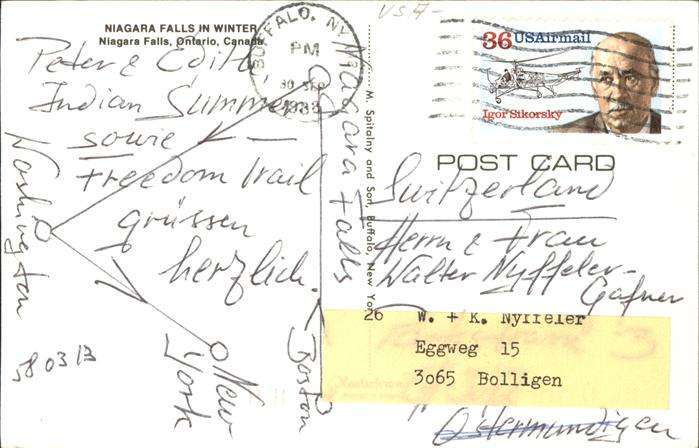 NIAGARA FALLS IN WINTER
Niagara Falls, Ontario, Canada
Peter & Edith
Indian Summer
sowie
freedom trail
grüssen
herzlich.
Washington
New
York
Boston
Niagara Falls
58 03 B
BUFFALO, NY
PM
30 SEP
1988
M. Spitalny and Son, Buffalo, New York
USA
36 USAirmail
Igor Sikorsky
POST CARD
Switzerland
Herrn & Frau
Walter Nyffeler-
Gafner
26
W. + K. Nyffeler
Eggweg 15
3065 Bolligen
Ostermundigen